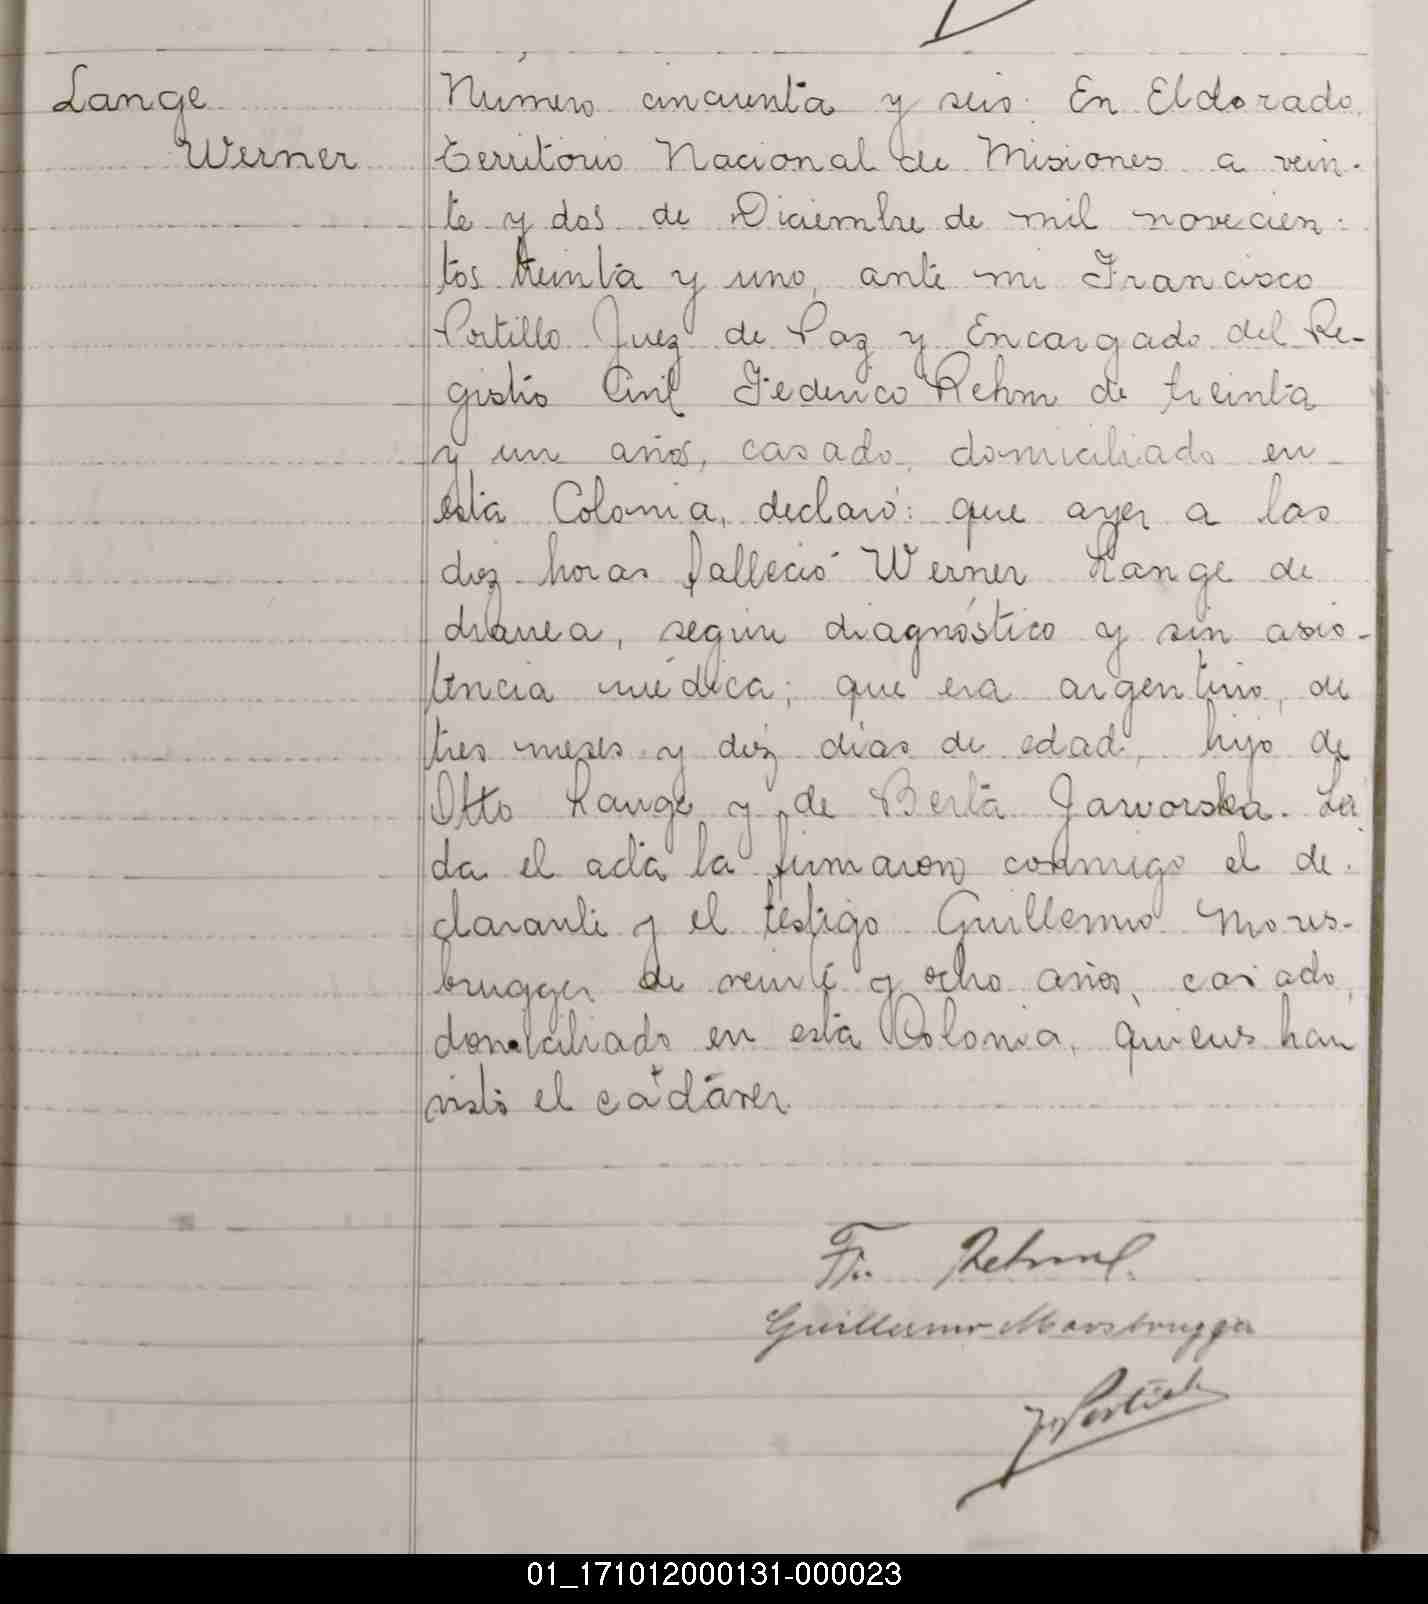 Lange
Werner
Número cincuenta y seis. En Eldorado,
territorio Nacional de Misiones a vein-
te y dos de Diciembre de mil novecien-
tos treinta y uno, ante mi Francisco
Portillo Juez de Paz y Encargado del Re-
gistro Civil Federico Rehm de treinta
y un años, casado, domiciliado en
esta Colonia, declaró: que ayer a las
diez horas falleció Werner Lange de
diarrea, según diagnóstico y sin asis-
tencia médica; que era argentino, de
tres meses y diez días de edad, hijo de
Otto Lange y de Berta Jaworska. Leí
da el acta la firmaron conmigo el de-
clarante y el testigo Guillermo Moors-
brugger de veinte y ocho años, casado,
domiciliado en esta Colonia, quienes han
visto el cadáver.
Fr. Rehm
Guillermo Moosbrugger
F Portillo
01_171012000131-000023